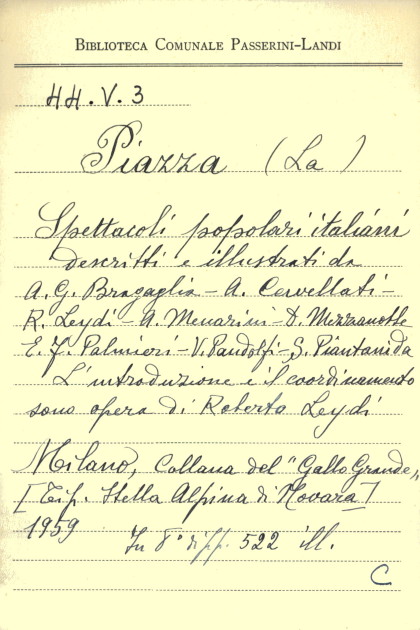 BIBLIOTECA COMUNALE PASSERINI-LANDI
44.V.3
Piazza (La)
Spettacoli popolari italiani
descritti e illustrati da
A. G. Bragaglia - A. Cervellati -
R. Leydi - A. Menarini - D. Mezzanotte
E. F. Palmieri - V. Pandolfi - S. Piantanida
L'introduzione e il coordinamento
sono opera di Roberto Leydi
Milano, Collana del "Gallo Grande"
[Tip. Stella Alpina di Novara]
1959 In 8° di pp. 522 ill.
C